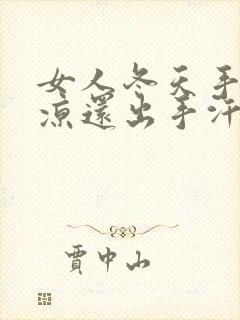 女人冬天手
凉還出手汗
賈中山